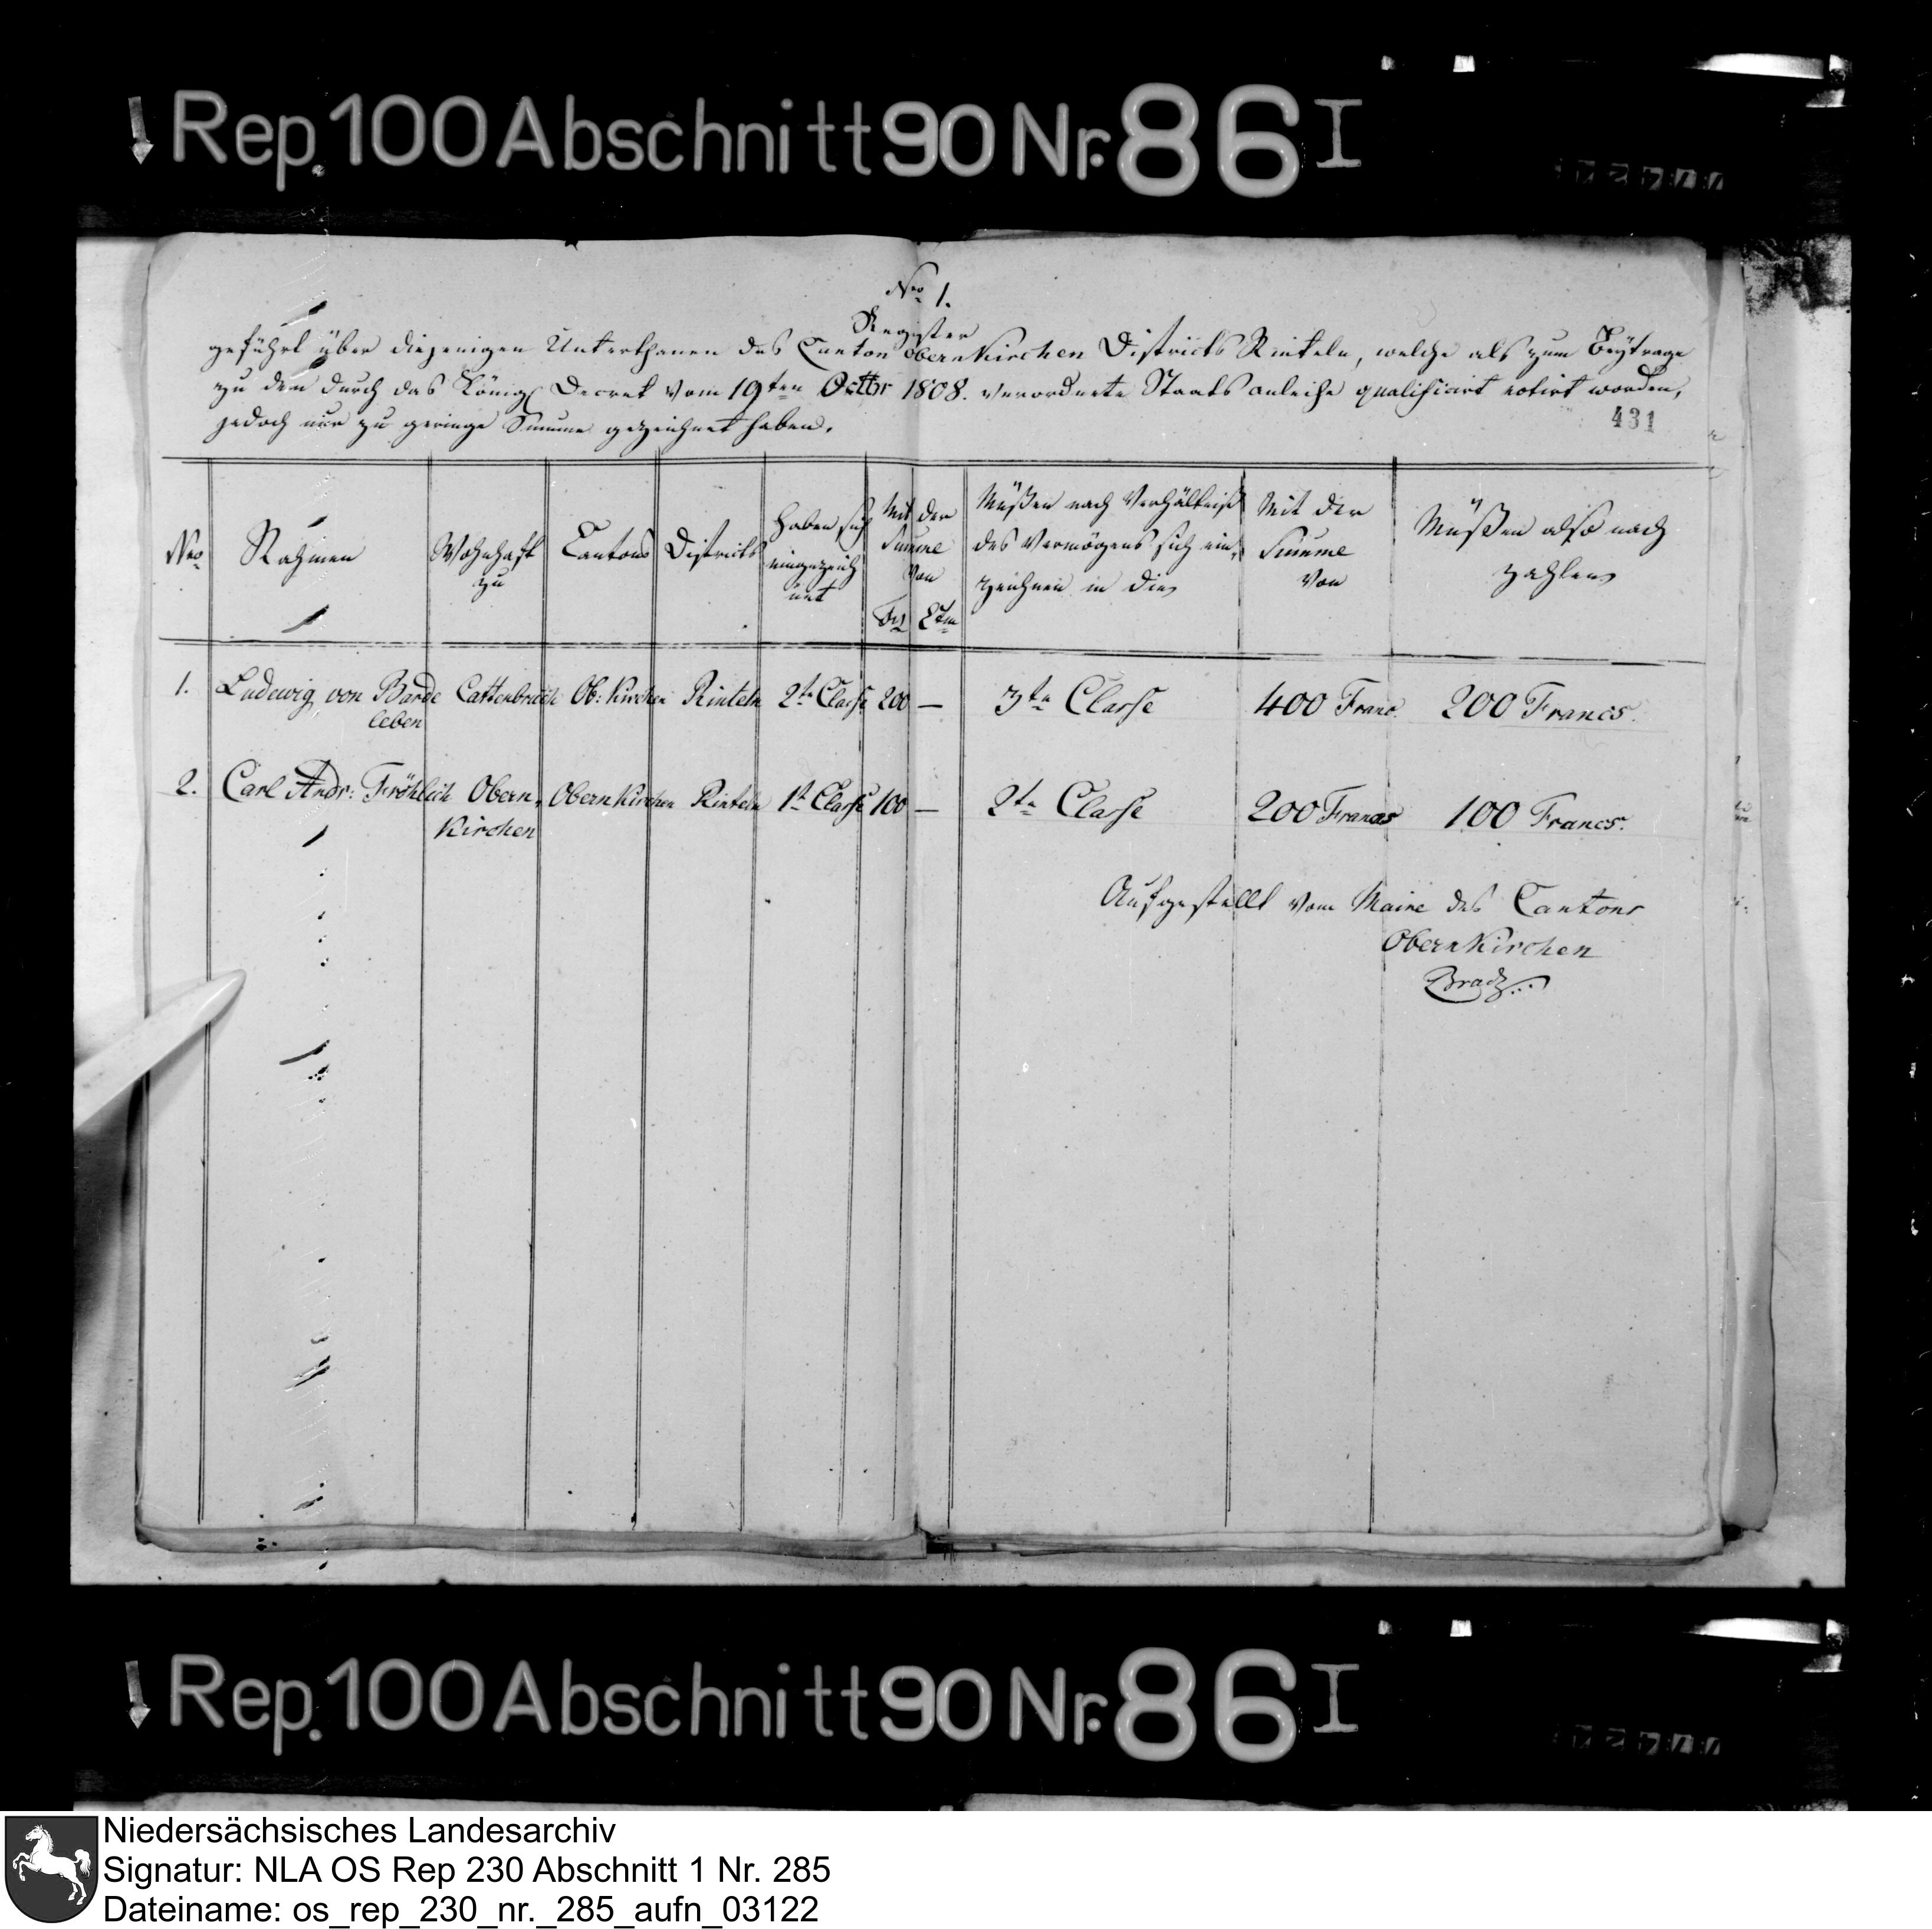 Rep. 100 Abschnitt 90 Nr. 86 I
Nro 1.
Register
geführt über diejenigen Unterthanen des Canton Obernkirchen Districts Rinteln, welche als zum Beytrage
zu den durch das Königl Decret vom 19ten Octbr 1808. verordnete Staats anleihe qualificirt notirt worden,
jedoch nur zu geringe Summe gezeichnet haben.
431
Nro Nahmen Wohnhaft zu Cantons Districts Haben sich eingezeichnet Mit der Summe von Frs Ctm Müßen nach Verhältniß des Vermögens sich einzeichnen in die Mit der Summe von Müßen also nach zahlen
1. Ludewig von Bardeleben Cattenbruch Ob: Kirchen Rinteln 2te Classe 200 — 3te Classe 400 Franc. 200 Francs.
2. Carl Andr: Fröhlich Obernkirchen Obernkirchen Rinteln 1te Classe 100 — 2te Classe 200 Francs 100 Francs.
Aufgestellt vom Maire des Cantons
Obernkirchen
Rep. 100 Abschnitt 90 Nr. 86 I
Niedersächsisches Landesarchiv
Signatur: NLA OS Rep 230 Abschnitt 1 Nr. 285
Dateiname: os_rep_230_nr._285_aufn_03122